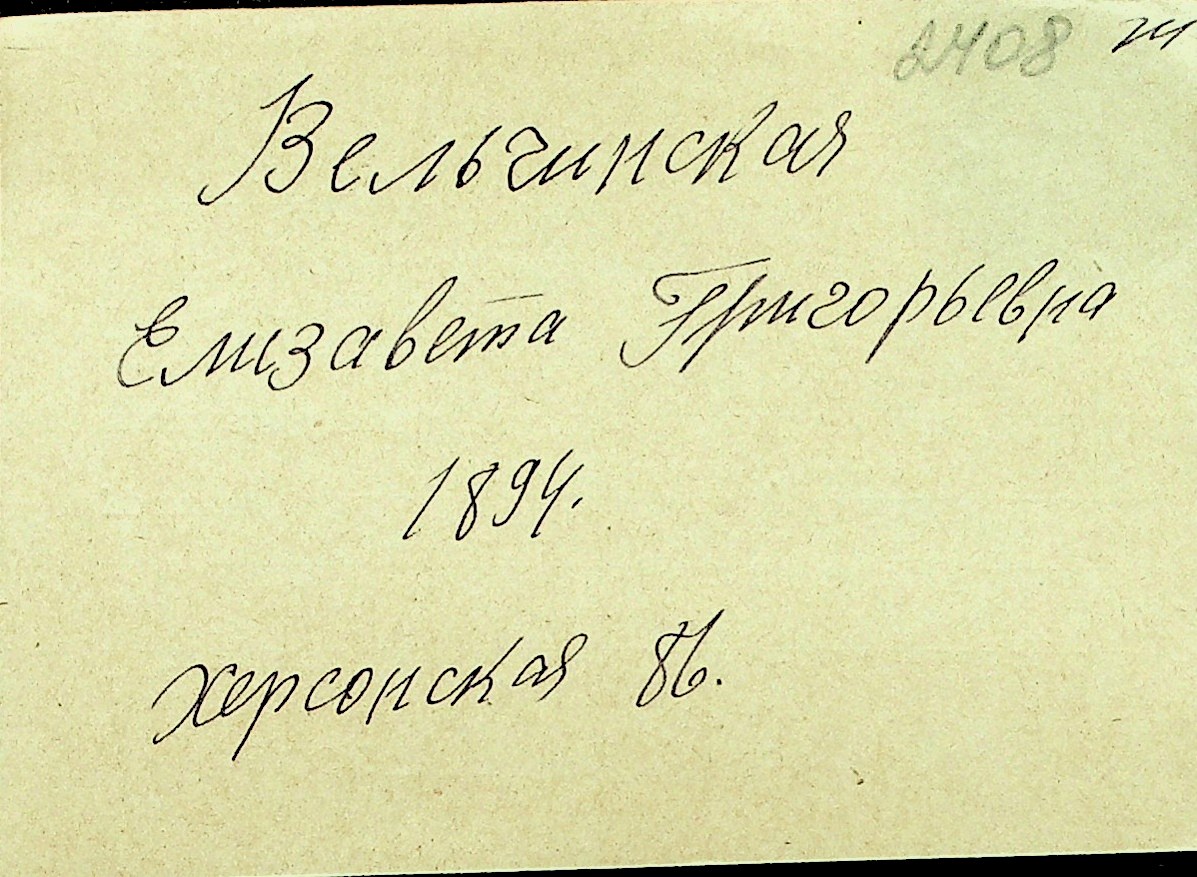 2408
Вельчинская
Елизавета Григорьевна
1894.
Херсонская 86.